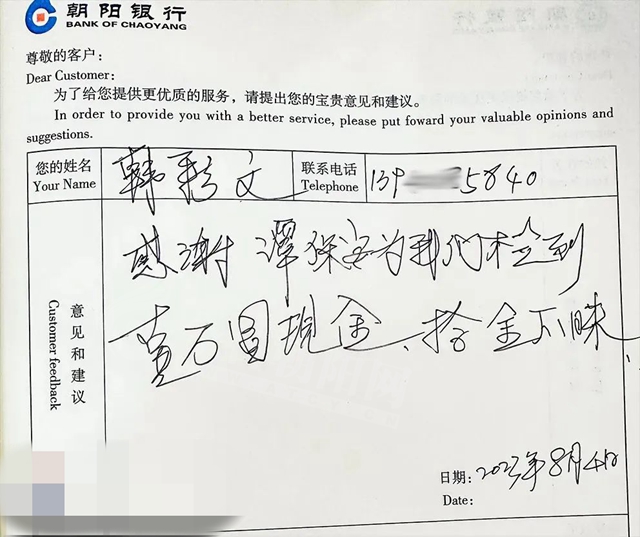 朝阳银行
BANK OF CHAOYANG
尊敬的客户：
Dear Customer:
为了给您提供更优质的服务，请提出您的宝贵意见和建议。
In order to provide you with a better service, please put foward your valuable opinions and
suggestions.
您的姓名 韩彩文 联系电话 139 5840
Your Name Telephone
意见和建议
Customer feedback
感谢谭保安为我们捡到
壹万圆现金、拾金不昧
日期：2023年8月4日
Date: